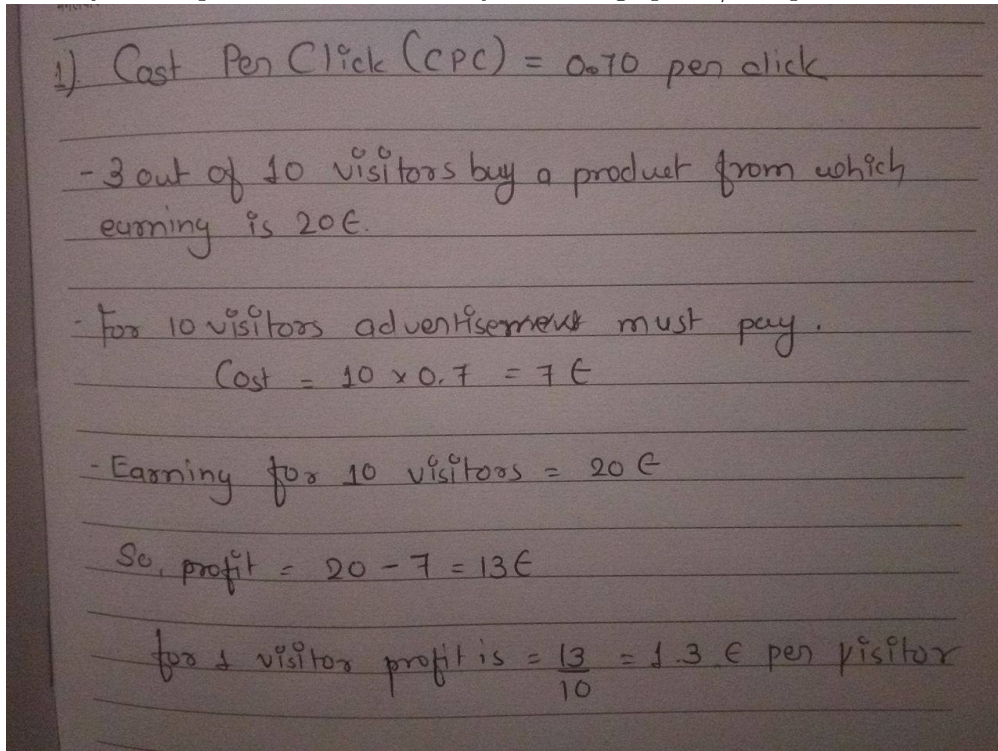 1). Cost Per Click (CPC) = 0.70 per click
- 3 out of 10 visitors buy a product from which
earning is 20€.
- For 10 visitors advertisement must pay.
Cost = 10 x 0.7 = 7 €
- Earning for 10 visitors = 20 €
So, profit = 20 - 7 = 13€
for 1 visitor profit is = 13/10 = 1.3 € per visitor